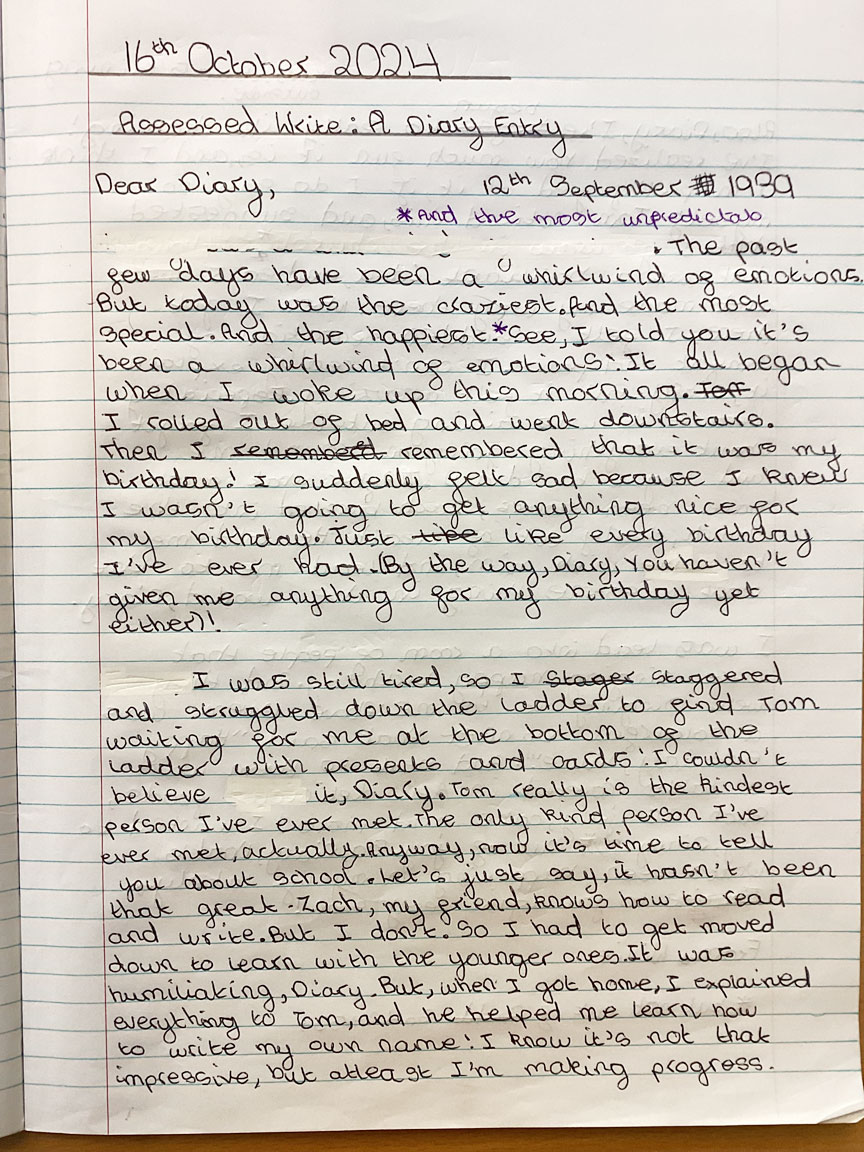 16th October 2024
Assessed Write: A Diary Entry
Dear Diary, 12th September 1939
*And the most unpredictab
. The past
few days have been a whirlwind of emotions.
But today was the craziest. And the most
special. And the happiest.* See, I told you it's
been a whirlwind of emotions! It all began
when I woke up this morning.
I rolled out of bed and went downstairs.
Then I remembered that it was my
birthday! I suddenly felt sad because I knew
I wasn't going to get anything nice for
my birthday. Just like every birthday
I've ever had. (By the way, Diary, You haven't
given me anything for my birthday yet
either)!
I was still tired, so I staggered
and struggled down the ladder to find Tom
waiting for me at the bottom of the
ladder with presents and cards! I couldn't
believe it, Diary. Tom really is the kindest
person I've ever met. The only kind person I've
ever met, actually. Anyway, now it's time to tell
you about school. Let's just say, it hasn't been
that great. Zach, my friend, knows how to read
and write. But I don't. So I had to get moved
down to learn with the younger ones. It was
humiliating, Diary. But, when I got home, I explained
everything to Tom, and he helped me learn how
to write my own name! I know it's not that
impressive, but atleast I'm making progress.